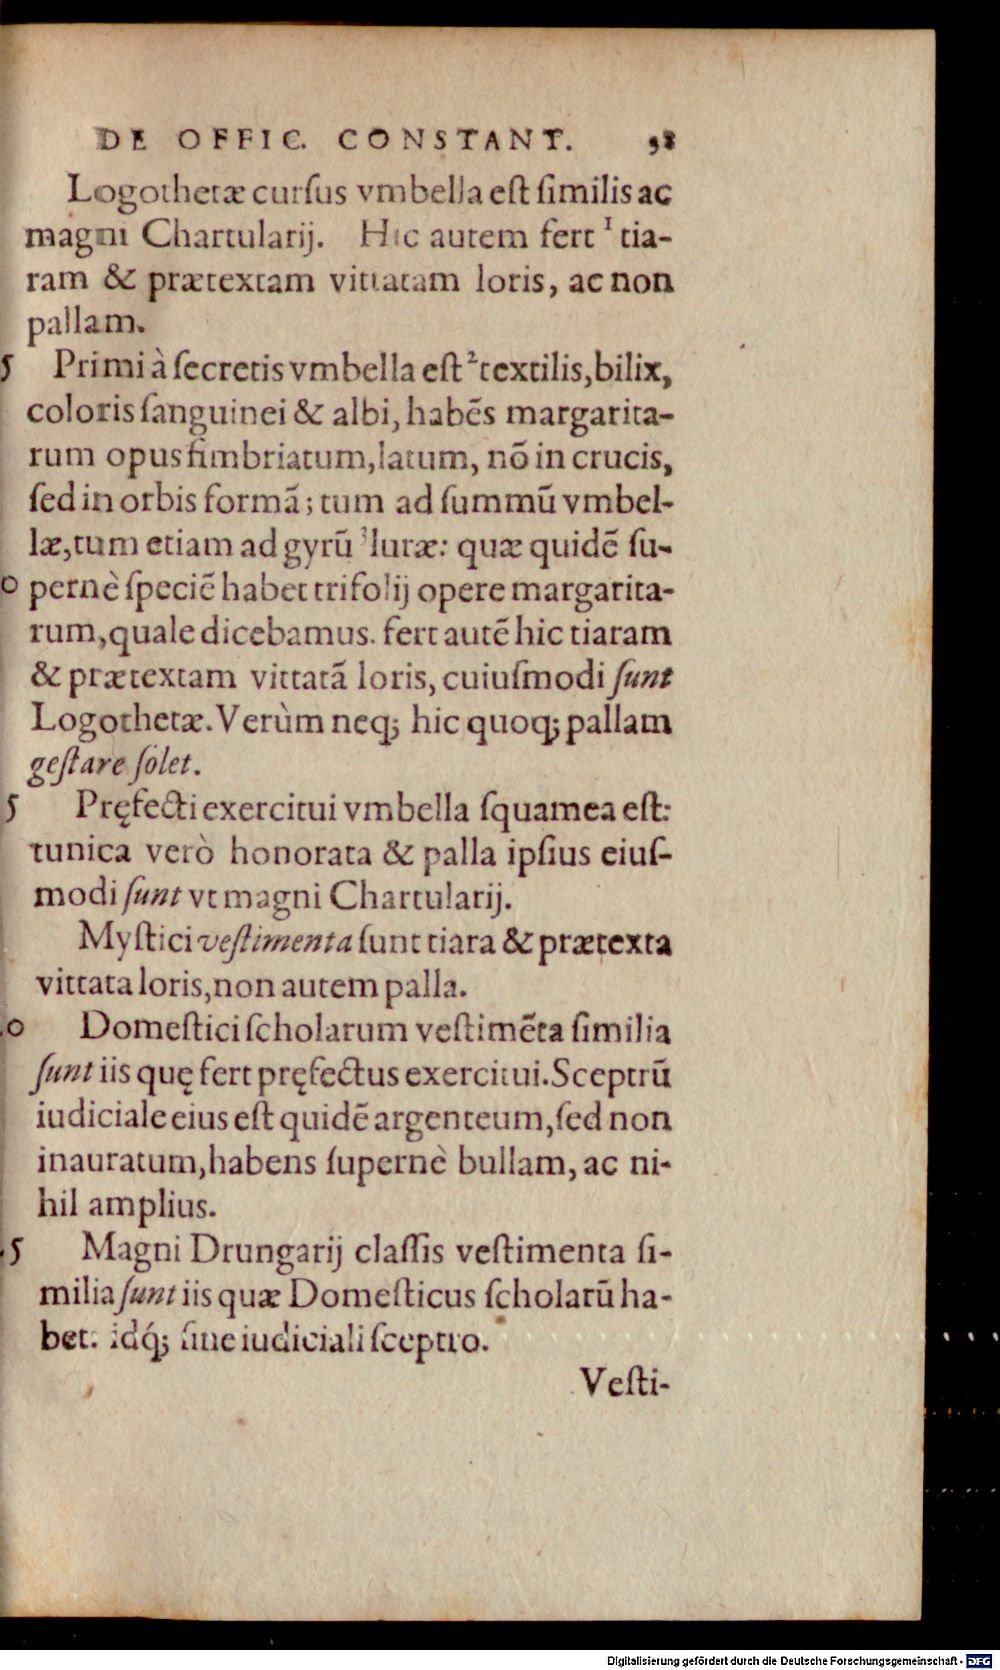 DE OFFIC. CONSTANT. 58
Logothetæ cursus vmbella est similis ac
magni Chartularij. Hic autem fert ¹ tia-
ram & prætextam vittatam loris, ac non
pallam.
5 Primi à secretis vmbella est ² textilis, bilix,
coloris sanguinei & albi, habēs margarita-
rum opus fimbriatum, latum, nō in crucis,
sed in orbis formā; tum ad summū vmbel-
læ, tum etiam ad gyrū ³ luræ: quæ quidē su-
0 pernè speciē habet trifolij opere margarita-
rum, quale dicebamus. fert autē hic tiaram
& prætextam vittatā loris, cuiusmodi sunt
Logothetæ. Verùm neq; hic quoq; pallam
gestare solet.
5 Pręfecti exercitui vmbella squamea est:
tunica verò honorata & palla ipsius eius-
modi sunt vt magni Chartularij.
Mystici vestimenta sunt tiara & prætexta
vittata loris, non autem palla.
.0 Domestici scholarum vestimēta similia
sunt iis quę fert pręfectus exercitui. Sceptrū
iudiciale eius est quidē argenteum, sed non
inauratum, habens supernè bullam, ac ni-
hil amplius.
.5 Magni Drungarij classis vestimenta si-
milia sunt iis quæ Domesticus scholarū ha-
bet. idq́; sine iudiciali sceptro.
Vesti-
Digitalisierung gefördert durch die Deutsche Forschungsgemeinschaft - DFG